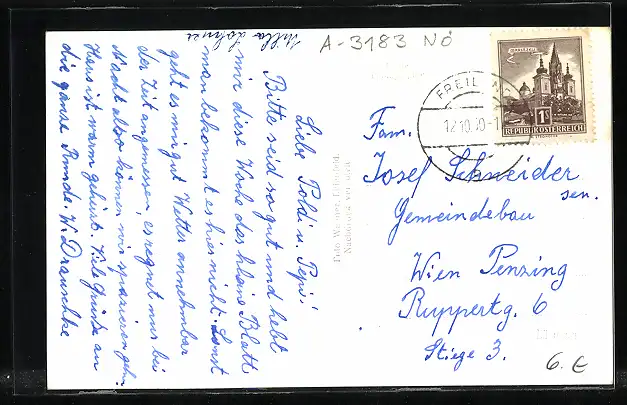 Villa Lohner
A-3183 NÖ
Liebe Poldi u. Pepi!
Bitte seid so gut und hebt
mir diese Woche das kleine Blatt,
man bekommt es hier nicht. Sonst
geht es mir gut Wetter annehmbar
der Zeit angemessen, es regnet nur bei
Nacht also können wir spazieren gehn.
Haus ist warm geheizt. Viele Grüße an
die ganze Runde. W. Drauschke
Foto Lilienfeld.
Nachdruck verboten
MARIAZELL
1S
REPUBLIK ÖSTERREICH
FREIL
12.10.
Fam.
Josef Schneider
sen.
Gemeindebau
Wien Penzing
Ruppertg. 6
Stiege 3.
6.€